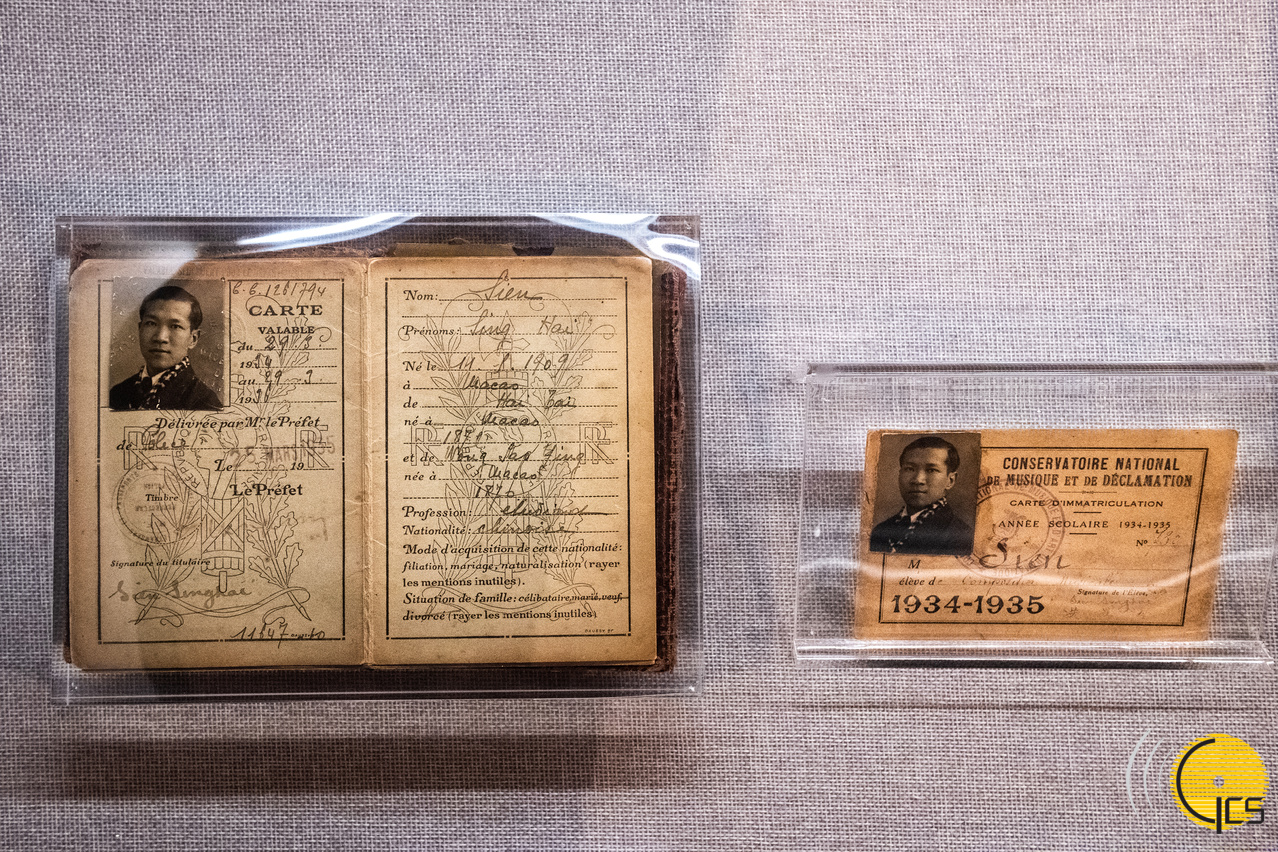 CARTE
VALABLE
du 29.3
1934
au 29 3
19
Délivrée par Mr. le Préfet
de
Le 19
Le Préfet
Timbre
Signature du titulaire
Sien Singhai
Nom: Sien
Prénoms: Sing Hai
Né le 11. 8. 1909
à Macao
de Hai Tai
né à Macao
187
et de Wong Sao Ying
née à Macao
1870
Profession:
Nationalité: chinoise
Mode d'acquisition de cette nationalité:
filiation, mariage, naturalisation (rayer
les mentions inutiles).
Situation de famille: célibataire, marié, veuf,
divorcé (rayer les mentions inutiles)
CONSERVATOIRE NATIONAL
DE MUSIQUE ET DE DÉCLAMATION
CARTE D'IMMATRICULATION
ANNÉE SCOLAIRE 1934-1935
No
M Sien
élève de Composition
Signature de l'Elève,
1934-1935
GCS